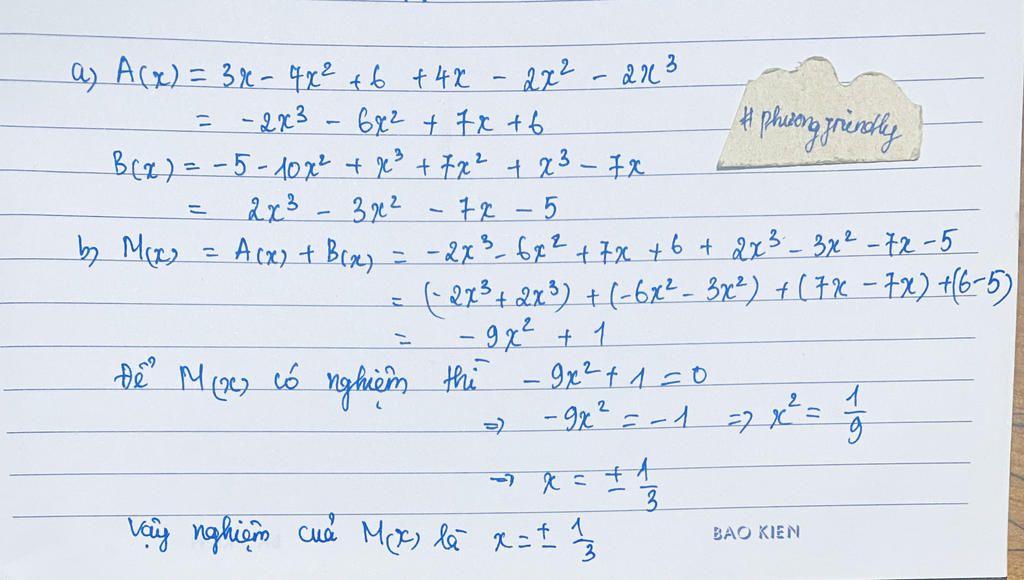 a) A(x) = 3x - 4x² + 6 + 4x - 2x² - 2x³
= -2x³ - 6x² + 7x + 6
# phuongfriendly
B(x) = -5 - 10x² + x³ + 7x² + x³ - 7x
= 2x³ - 3x² - 7x - 5
b) M(x) = A(x) + B(x) = -2x³ - 6x² + 7x + 6 + 2x³ - 3x² - 7x - 5
= (-2x³ + 2x³) + (-6x² - 3x²) + (7x - 7x) + (6 - 5)
= -9x² + 1
Để M(x) có nghiệm thì -9x² + 1 = 0
⇒ -9x² = -1 ⇒ x² = 1/9
⇒ x = ± 1/3
Vậy nghiệm của M(x) là x = ± 1/3
BAO KIEN